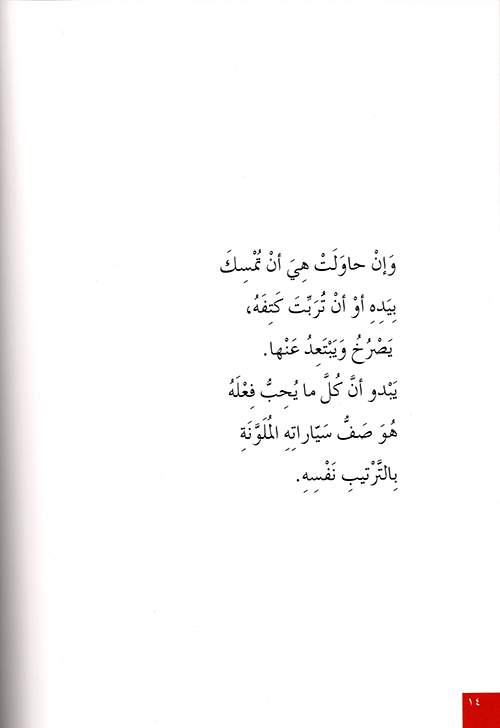 وَإنْ حاوَلَتْ هِيَ أنْ تُمْسِكَ
بِيَدِهِ أوْ أنْ تُرَبِّتَ كَتِفَهُ،
يَصْرُخُ وَيَبْتَعِدُ عَنْها.
يَبْدو أنَّ كُلَّ ما يُحِبُّ فِعْلَهُ
هُوَ صَفُّ سَيّاراتِهِ المُلَوَّنَةِ
بِالتَّرْتيبِ نَفْسِهِ.
١٤